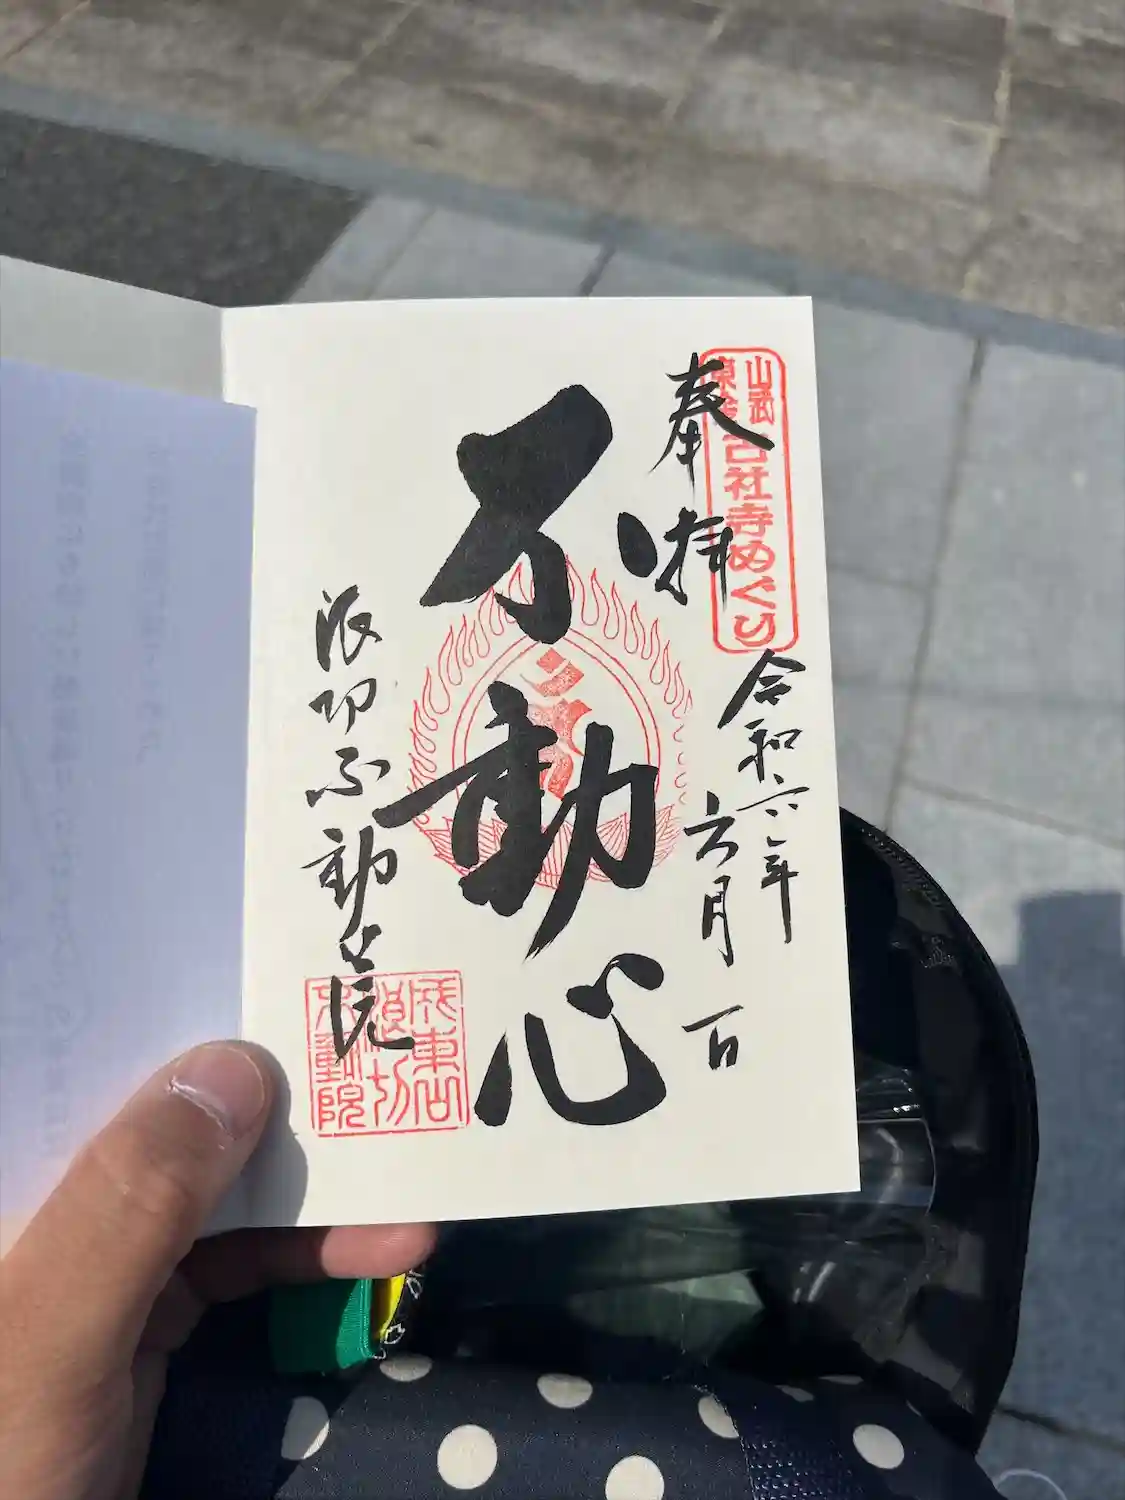 奉拝
山武
東金
古社寺めぐり
令和六年
六月一日
不動心
浪切不動院
成東山
浪切
不動院